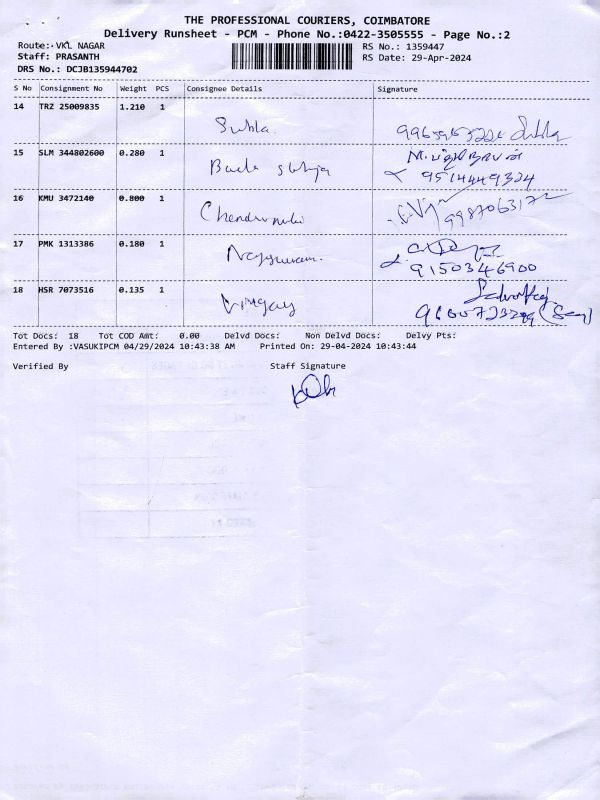 THE PROFESSIONAL COURIERS, COIMBATORE
Delivery Runsheet - PCM - Phone No.:0422-3505555 - Page No.:2
Route: VKL NAGAR
RS No.: 1359447
Staff: PRASANTH
RS Date: 29-Apr-2024
DRS No.: DCJB135944702
S No Consignment No Weight PCS Consignee Details Signature
14 TRZ 25009835 1.210 1
Subha.
15 SLM 344802600 0.280 1
9514449324
16 KMU 3472140 0.800 1
17 PMK 1313386 0.180 1
9150346900
18 HSR 7073516 0.135 1
Tot Docs: 18 Tot COD Amt: 0.00 Delvd Docs: Non Delvd Docs: Delvy Pts:
Entered By :VASUKIPCM 04/29/2024 10:43:38 AM Printed On: 29-04-2024 10:43:44
Verified By Staff Signature